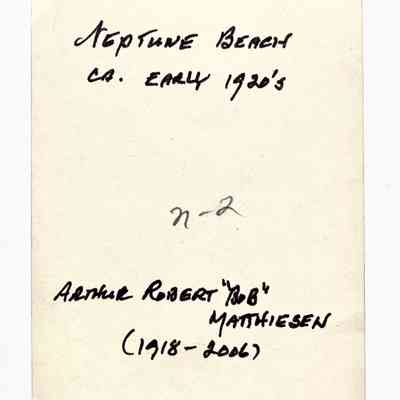 NEPTUNE BEACH
CA. EARLY 1920's
n-2
ARTHUR ROBERT "BOB"
MATTHIESEN
(1918-2006)